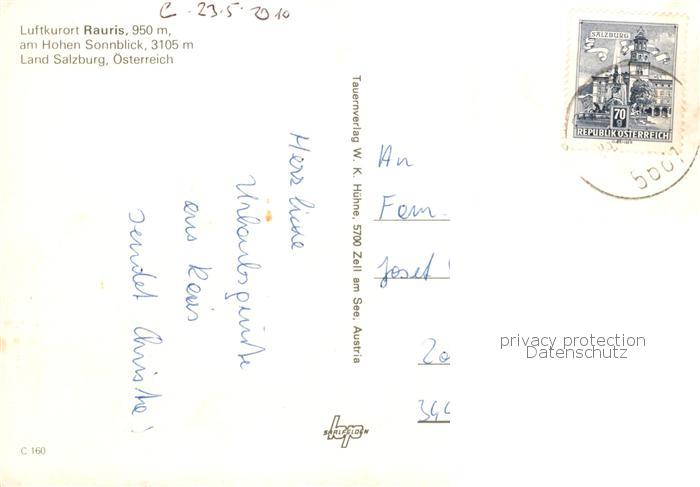 C - 23.5.2010
Luftkurort Rauris, 950 m,
am Hohen Sonnblick, 3105 m
Land Salzburg, Österreich
SALZBURG
70
g
REPUBLIK ÖSTERREICH
Tauernverlag W. K. Hühne, 5700 Zell am See, Austria
Herzliche
Urlaubsgrüße
aus Rauris
sendet Christa
An
Fam.
Josef
privacy protection
Datenschutz
SAALFELDEN
C 160